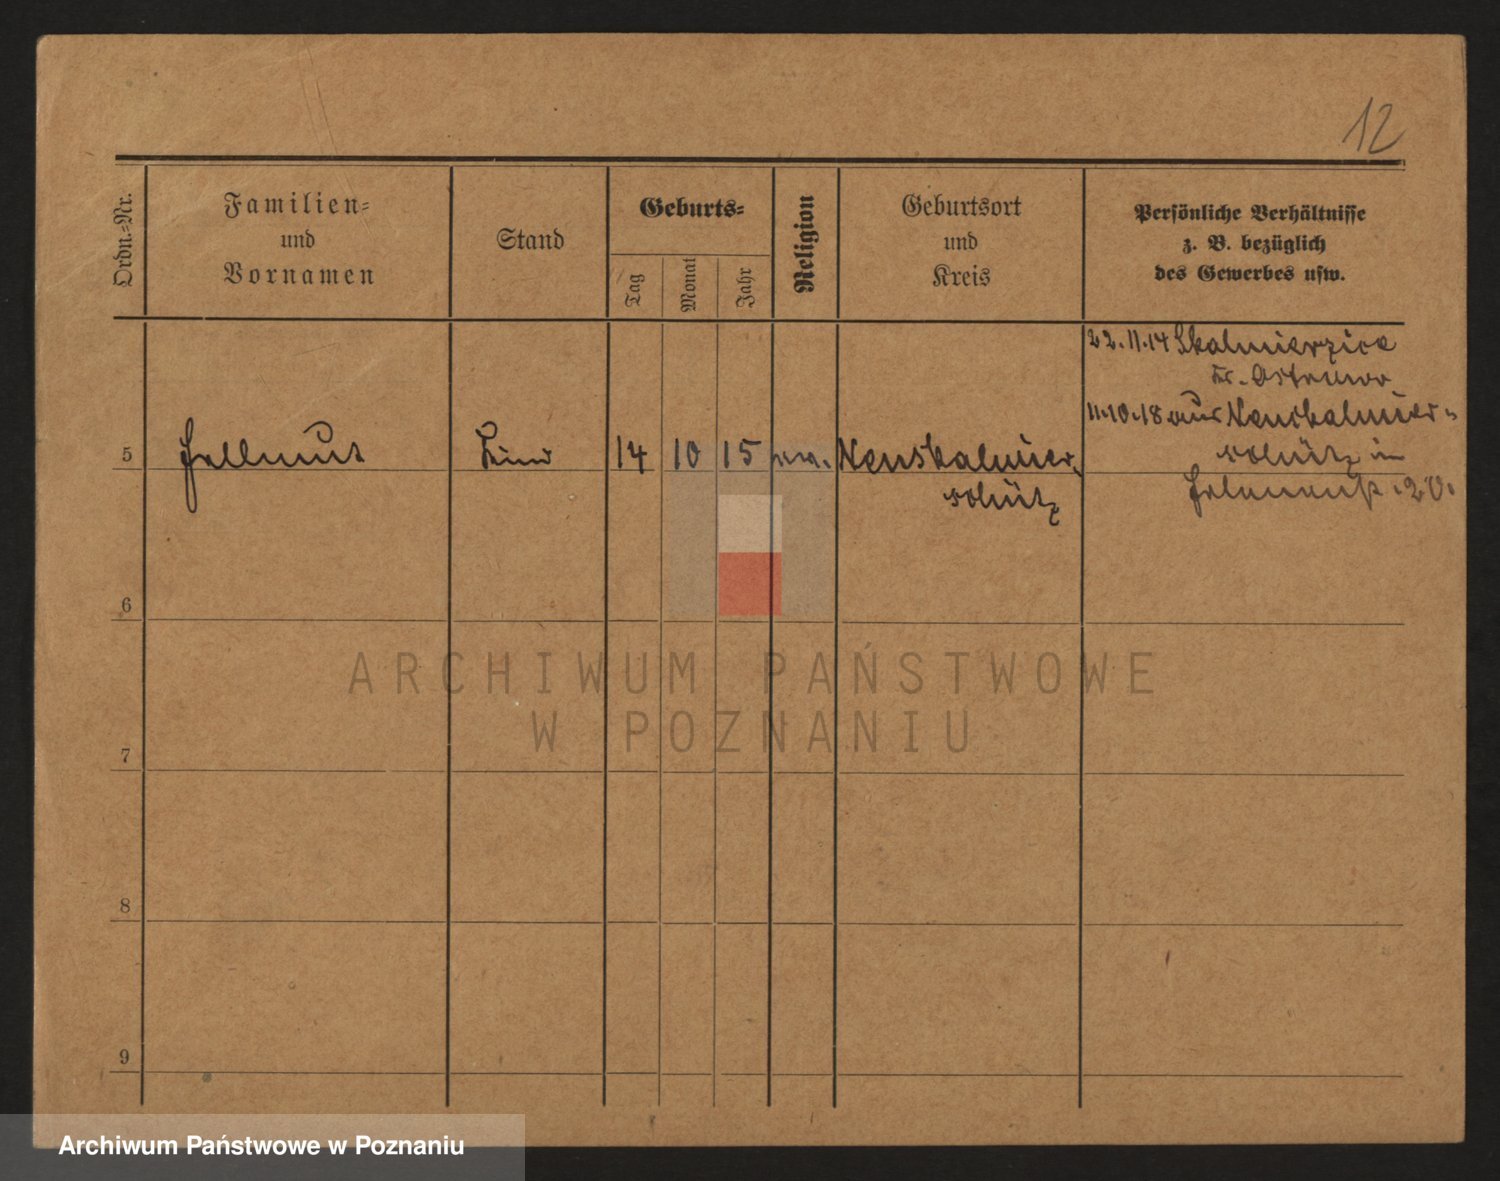 12
Ordn.-Nr.
Familien-
und
Vornamen
Stand
Geburts-
Tag
Monat
Jahr
Religion
Geburtsort
und
Kreis
Persönliche Verhältnisse
z. B. bezüglich
des Gewerbes usw.
22.11.14 Skalmierzice
Kr. Ostrowo
11.10.18 aus Neuskalmier-
5 Hellmut Kind 14 10 15 Neuskalmier-
schütz in
schütz
20.
6
7
8
9
ARCHIWUM PAŃSTWOWE
W POZNANIU
Archiwum Państwowe w Poznaniu